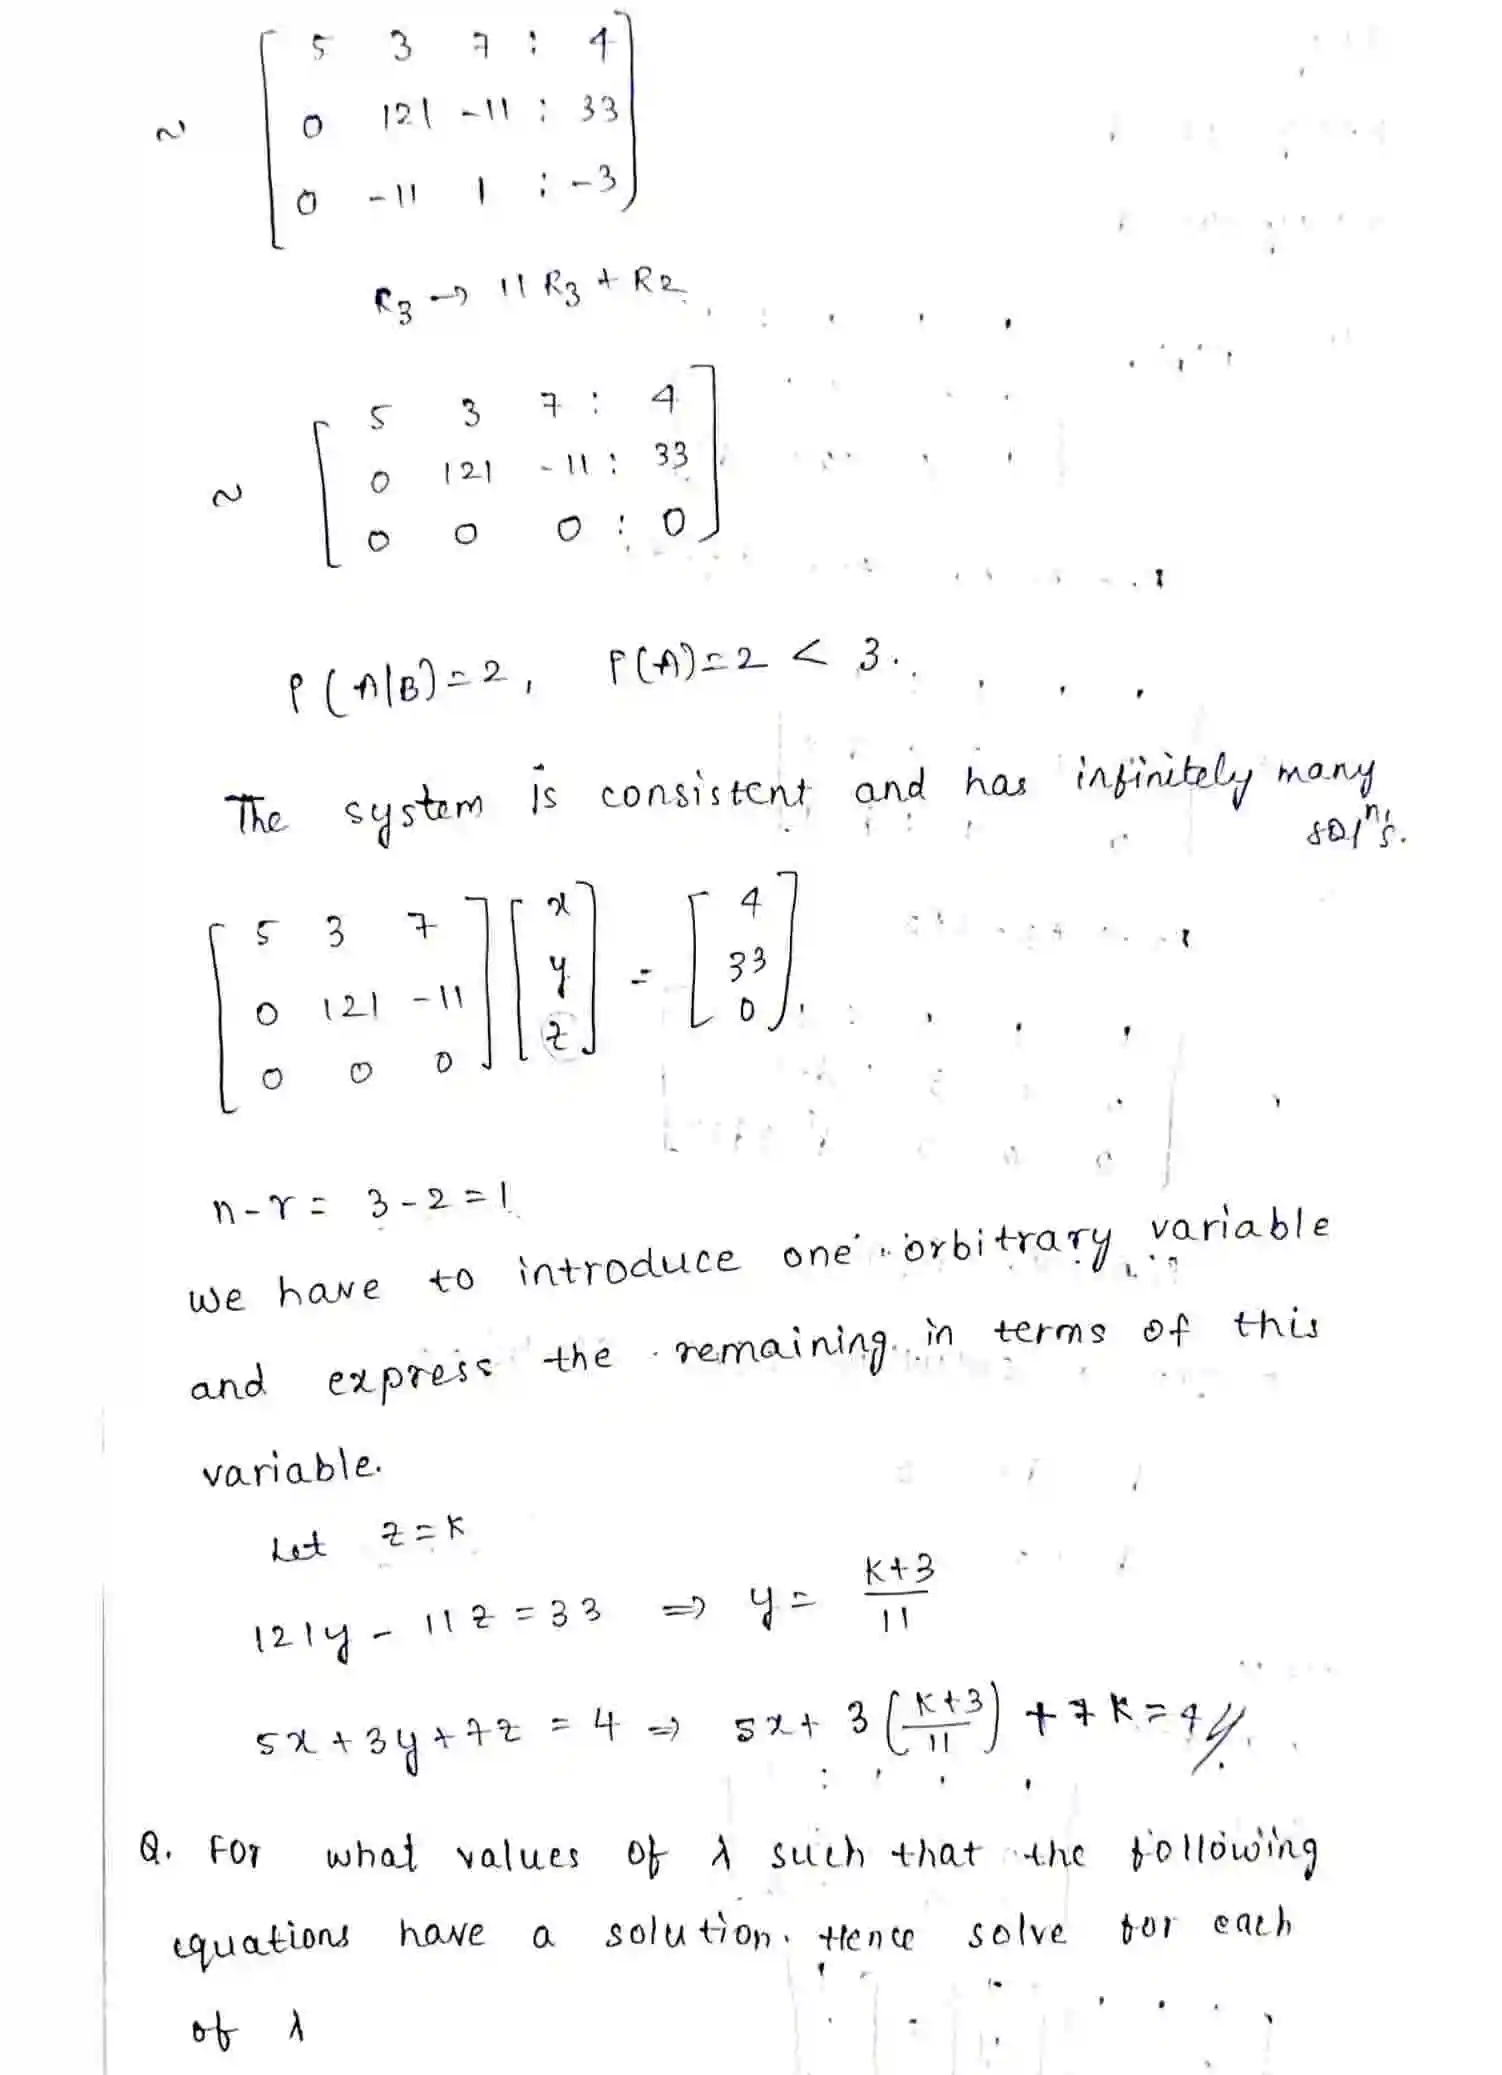 5 3 7 : 4
~ 0 121 -11 : 33
0 -11 1 : -3
R3 → 11 R3 + R2
5 3 7 : 4
~ 0 121 -11 : 33
0 0 0 : 0
ρ(A|B)=2, ρ(A)=2 < 3.
The system is consistent and has infinitely many
solⁿ's.
[5 3 7] [x] = [4]
[0 121 -11] [y] [33]
[0 0 0] [z] [0]
n-r= 3-2=1
we have to introduce one orbitrary variable
and express the remaining in terms of this
variable.
Let z=k
121y - 11z = 33 ⇒ y = (k+3)/11
5x + 3y + 7z = 4 ⇒ 5x + 3((k+3)/11) + 7k = 4//.
Q. For what values of λ such that the following
equations have a solution. Hence solve for each
of λ